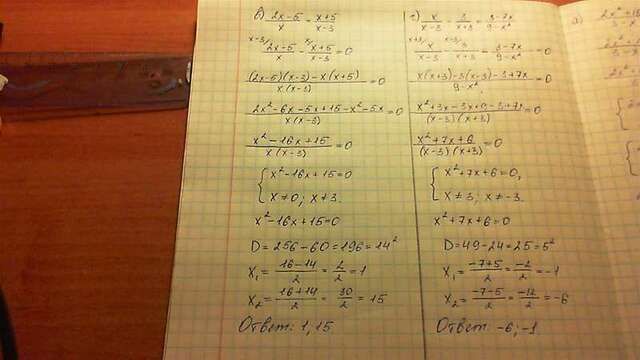 б) (2x-5)/x = (x+5)/(x-3)
x-3/ (2x-5)/x - x/ (x+5)/(x-3) = 0
((2x-5)(x-3)-x(x+5))/(x(x-3)) = 0
(2x²-6x-5x+15-x²-5x)/(x(x-3)) = 0
(x²-16x+15)/(x(x-3)) = 0
{ x²-16x+15=0
x≠0; x≠3.
x²-16x+15=0
D=256-60=196=14²
x₁= (16-14)/2 = 2/2 = 1
x₂= (16+14)/2 = 30/2 = 15
Ответ: 1; 15
г) x/(x-3) - 3/(x+3) = (3-7x)/(9-x²)
x+3/ x/(x-3) - x-3/ 3/(x+3) - (3-7x)/(9-x²) = 0
(x(x+3)-3(x-3)-3+7x)/(9-x²) = 0
(x²+3x-3x+9-3+7x)/((x-3)(x+3)) = 0
(x²+7x+6)/((x-3)(x+3)) = 0
{ x²+7x+6=0,
x≠3; x≠-3.
x²+7x+6=0
D=49-24=25=5²
x₁= (-7+5)/2 = -2/2 = -1
x₂= (-7-5)/2 = -12/2 = -6
Ответ: -6; -1